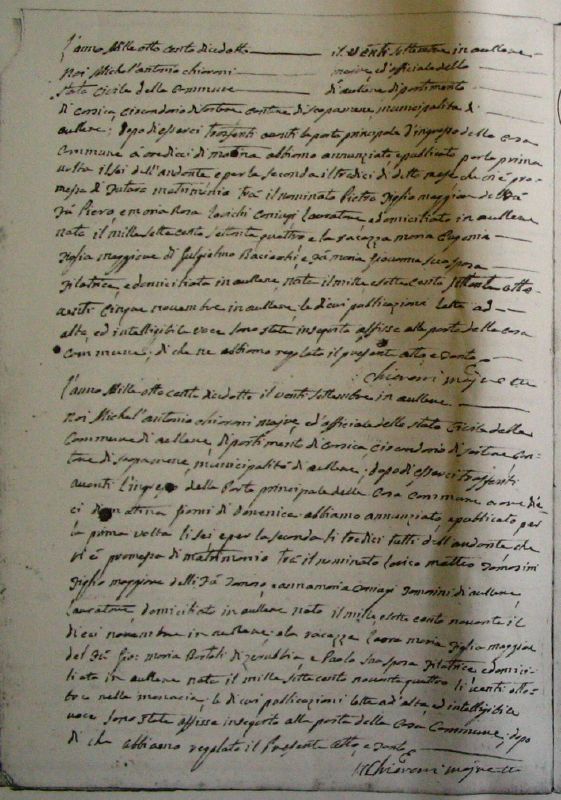 L'anno Mille otto cento dicidotto il venti settembre in aullene
Noi Michel'antonio chiaroni majre, ed officiale dello
stato Civile della Commune di aullene dipartimento
di corsica, circondario di sartene cantone di scopamene, municipalità d'
aullene; dopo di esserci trasferiti avanti la porta principale d'ingresso della Casa
Commune a ore dieci di matina abbiamo annunziato e publicato per la prima
volta il sei dell'andante e per la seconda il tredici di detto mese che vi è pro-
messa di futuro matrimonio trà il nominato Pietro figlio maggiore dell fù
fù Piero, e maria Rosa conjugi lavoratore e domiciliato in aullene
nato il mille sette cento settanta quattro e la ragazza maria Eugenia
figlia maggiore di Guglielmo Baciocchi, e di maria Giovanna sua sposa
filatrice, e domiciliata in aullene, nata il mille e sette cento settanta otto
cinque novembre in aullene, le di cui publicazione lette ad
alta, ed intelligibile voce sono state inseguito affisse alle porte della casa
Commune; di che ne abbiamo regolato il presente atto, e
Chiaroni majre
L'anno Mille otto cento dicidotto il venti settembre in aullene
Noi Michel'antonio chiaroni majre, ed officiale dello stato Civile della
Commune di aullene dipartimento di corsica circondario di sartene can-
tone di scopamene, municipalità di aullene; dopo di esserci trasferiti
avanti l'ingresso della Porta principale della Casa Commune a ore die-
ci di matina giorni di Domenica abbiamo annunziato, e publicato per
la prima volta li sei e per la seconda li tredici tutti dell'andante che
vi è promessa di matrimonio trà il nominato matteo Tomasini
figlio maggiore delli fù e annamaria conjugi Tomasini di aullene
lavoratore, domiciliato in aullene nato il mille e sette cento novanta il
dieci novembre in aullene; e la ragazza maria figlia maggiore
del fù Gio: maria Bartoli di zerubbia, e Paola sua sposa filatrice e domici-
liata in aullene nata il mille sette cento novanta quattro li venti otto-
bre nella monacia; le di cui publicazioni lette ad alta, ed intelligibile
voce sono state affisse inseguito alla porta della Casa Commune; dopo
di che abbiamo regolato il Presente atto, e
Chiaroni majre